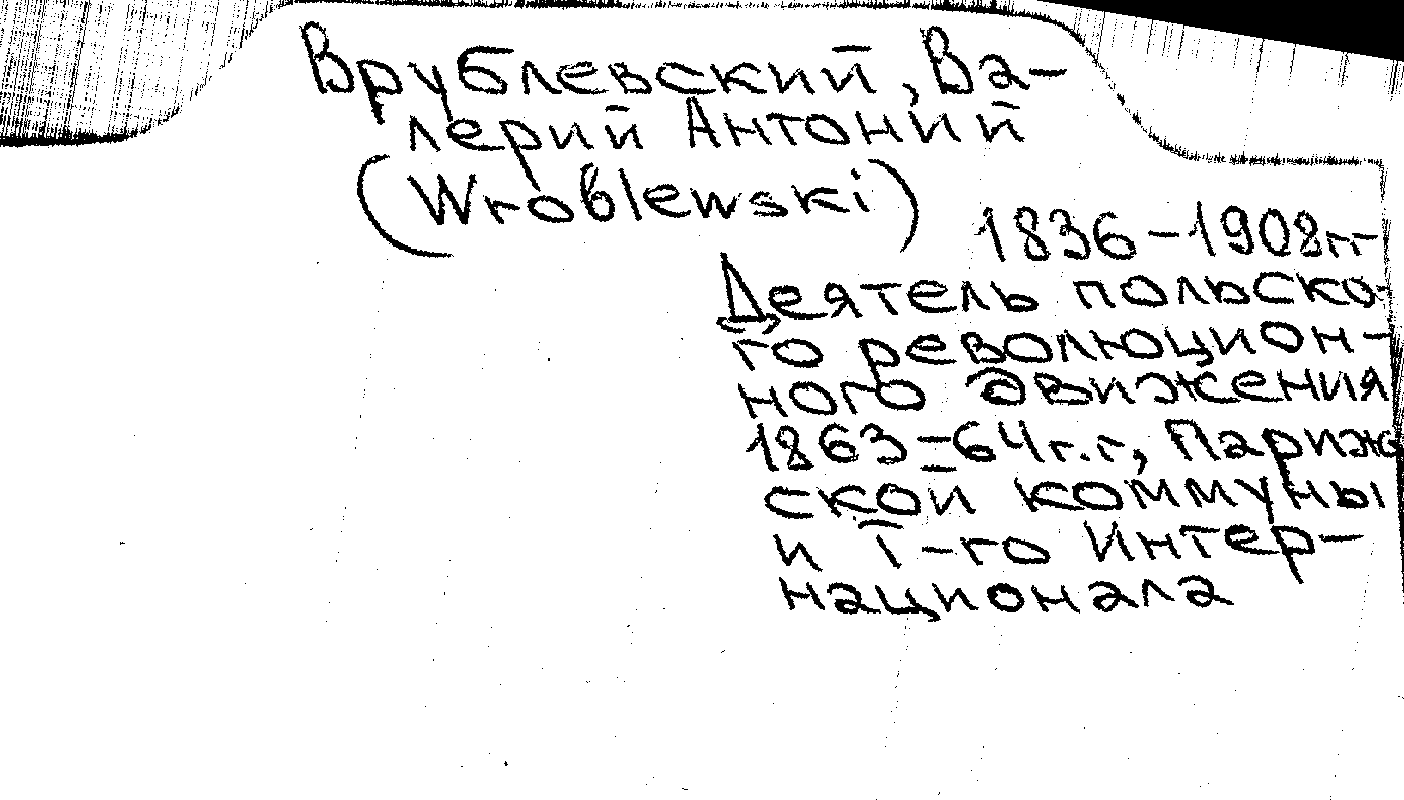 Врублевский, Ва-
лерий Антоний
(Wroblewski)
1836-1908гг.
Деятель польско-
го революцион-
ного движения
1863-64г.г., Париж
ской коммуны
и I-го Интер-
национала